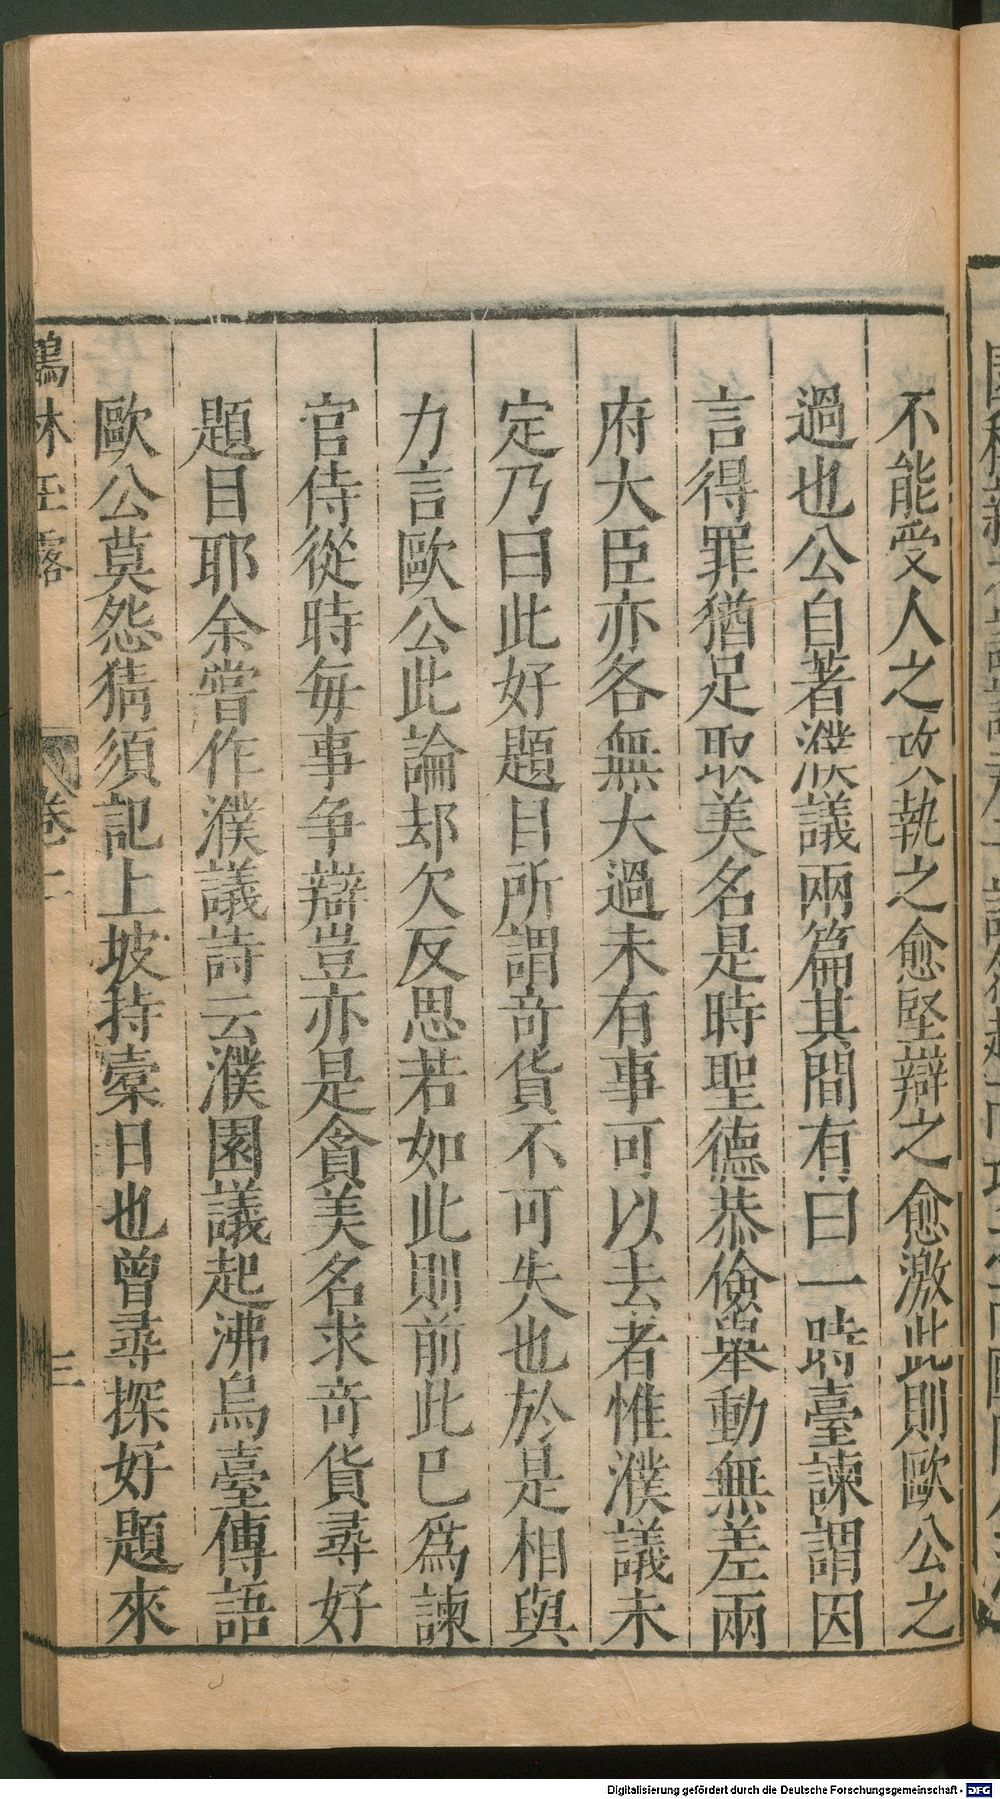 不能受人之攻執之愈堅辯之愈激此則歐公之
過也公自著濮議兩篇其間有曰一時臺諫謂因
言得罪猶足取美名是時聖德恭儉舉動無差兩
府大臣亦各無大過未有事可以去者惟濮議未
定乃曰此好題目所謂竒貨不可失也於是相與
力言歐公此論却欠反思若如此則前此巳爲諫
官侍從時每事争辯豈亦是貪美名求竒貨尋好
題目耶余嘗作濮議詩云濮園議起沸烏臺傳語
歐公莫怨猜須記上坡持槖日也曾尋探好題來
鶴林玉露
卷二
三
Digitalisierung gefördert durch die Deutsche Forschungsgemeinschaft - DFG